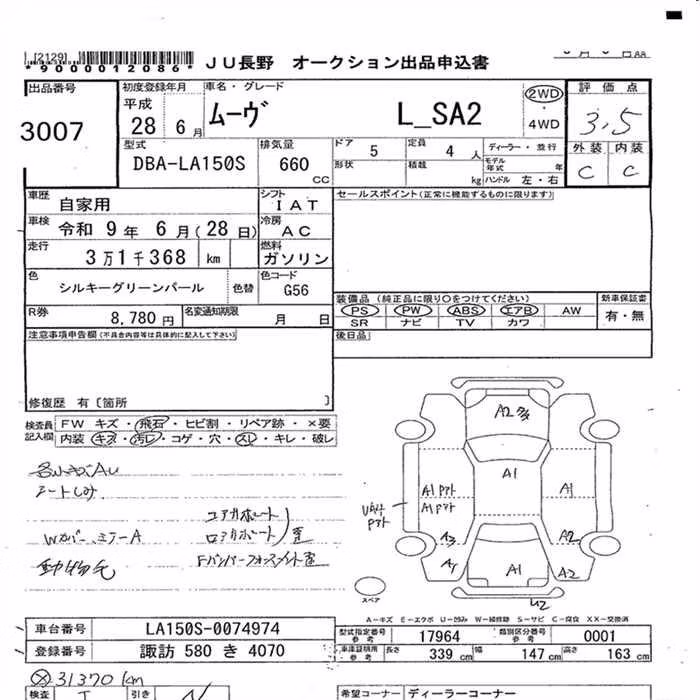 [2129]
*9000012086* JU長野 オークション出品申込書
出品番号
3007
初度登録年月
平成
28 6月
車名・グレード
ムーヴ L_SA2
2WD
・
4WD
評価点
3.5
外装 内装
C C
型式
DBA-LA150S
排気量
660
CC
ドア 5
形状
定員 4 人
積載 kg
ディーラー・並行
モデル年式 年
ハンドル 左・右
車歴
自家用
シフト
IAT
車検
令和 9年 6月(28日)
冷房
AC
走行
3万1千368 km
燃料
ガソリン
色
シルキーグリーンパール
色替
色コード
G56
R券
8,780 円
名変通知期限
月 日
セールスポイント(正常に機能するものに限ります)
装備品(純正品に限り○をつけてください)
PS PW ABS エアB AW
SR ナビ TV カワ
新車保証書
有・無
注意事項申告欄(不具合内容等は具体的に記入して下さい)
後日品
修復歴 有〔箇所 〕
検査員
記入欄
FW キズ・飛石・ヒビ割・リペア跡・×要
内装 キズ・汚レ・コゲ・穴・スレ・キレ・破レ
各小キズAU
シートしみ
Wカバー、ミラーA
動物毛
コアサポート
ロアサポート
Fバンパーフォースメイト
A2 多
A1
A1 Pアト
A1 Pアト
A1
A3
A2
A1
A1
A2
U2
Pアト
スペア
A-キズ E-エクボ U-凹み W-補修跡 S-サビ C-腐食 XX-交換済
車台番号
LA150S-0074974
登録番号
諏訪 580 き 4070
型式指定番号
参考
17964
類別区分番号
参考
0001
車庫証明用
参考
長さ 339 cm
幅 147 cm
高さ 163 cm
31370 km
検査
引き
希望コーナー ディーラーコーナー